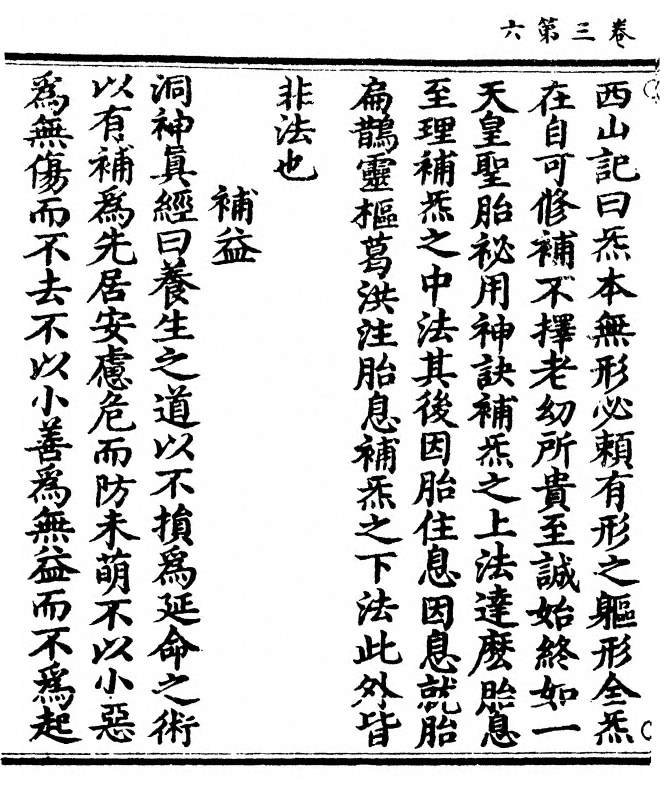 卷三第六
西山記曰炁本無形必賴有形之軀形全炁
在自可修補不擇老幼所貴至誠始終如一
天皇聖胎祕用神訣補炁之上法達麽胎息
至理補炁之中法其後因胎住息因息就胎
扁鵲靈樞葛洪注胎息補炁之下法此外皆
非法也
補益
洞神眞經曰養生之道以不損爲延命之術
以有補爲先居安慮危而防未萌不以小惡
爲無傷而不去不以小善爲無益而不爲起